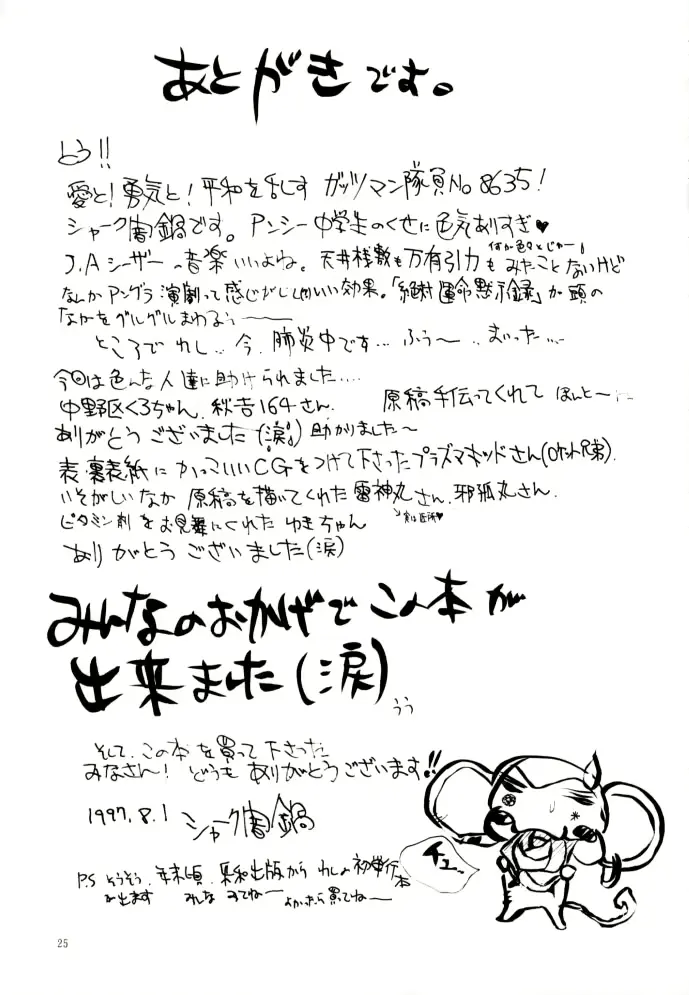 あとがきです。
とう!!
愛と!勇気と!平和を乱すガッツマン隊員No 8635!
シャーク闇鍋です。アンシー中学生のくせに色気ありすぎ♥
J.Aシーザーの音楽いいよね。天井桟敷も万有引力もみたことないけど
なんかアングラ演劇って感じがしていい効果。「絶対運命黙示録」が頭の
なかをグルグルまわるぅー
ところでわし..今、肺炎中です…ふぅ〜..まいった…
今回は色んな人達に助けられました....
中野区くろちゃん、秋吉164さん、原稿手伝ってくれてほんとー
ありがとうございました(涙)助かりました〜
表・裏表紙にかっこいいCGをつけて下さったプラズマキッドさん(ロケット兄弟)、
いそがしいなか原稿を描いてくれた雷神丸さん、邪狐丸さん、
ビタミン剤をお見舞にくれたゆきちゃん
ありがとうございました(涙)
みんなのおかげでこの本が
出来ました(涙)
うぅ
そして、この本を買って下さった
みなさん!どうもありがとうございます!!
1997.8.1 シャーク闇鍋
チュー..
P.S そうそう、年末頃、東和出版からわしの初単行本
が出ます みんなみてねー よかったら買てねー
25